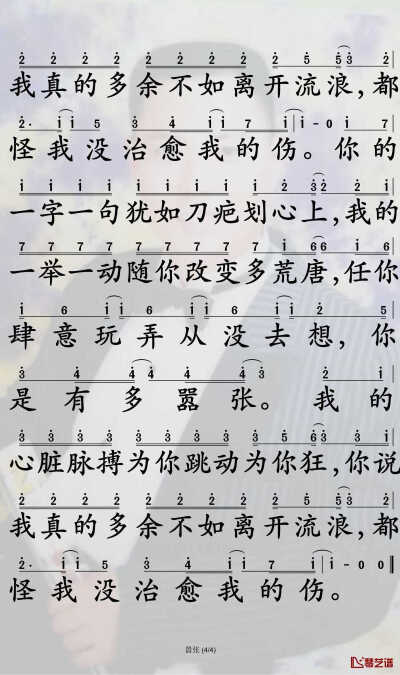 2 2 2 2 2 2 2 2 2 5 5 3 2
我真的多余不如离开流浪,都
2· i i 5 3 4 i i 7 i | i - 0 i 7
怪我没治愈我的伤。你的
i i i i i i i i i 2 3 2 2 i
一字一句犹如刀疤划心上,我的
7 7 7 7 7 7 7 7 i 6 6 i 6
一举一动随你改变多荒唐,任你
i 6 i i 6 i i 6 i i 2 5
肆意玩弄从没去想,你
3 4 4 4 4 4 3 2 i
是有多嚣张。我的
3 3 3 3 3 3 3 3 3 5 6 3 3 i
心脏脉搏为你跳动为你狂,你说
2 2 2 2 2 2 2 2 2 5 5 3 2
我真的多余不如离开流浪,都
2· i i 5 3 4 i i 7 i | i - 0 0
怪我没治愈我的伤。
嚣张 (4/4)
琴艺谱